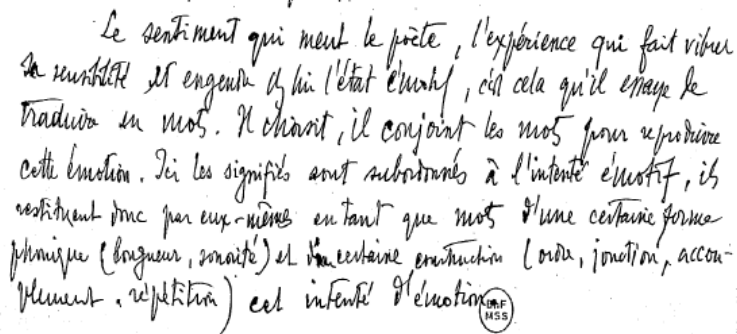 Le sentiment qui meut le poète, l'expérience qui fait vibrer
sa sensibilité et engendre ds lui l'état émotif, c'est cela qu'il essaye de
traduire en mots. Il choisit, il conjoint les mots pour reproduire
cette émotion. Ici les signifiés sont subordonnés à l'intenté émotif, ils
restituent donc par eux-mêmes en tant que mots d'une certaine forme
phonique (longueur, sonorité) et d'une certaine construction (ordre, jonction, accou-
plement, répétition) cet intenté d'émotion.
BnF
MSS